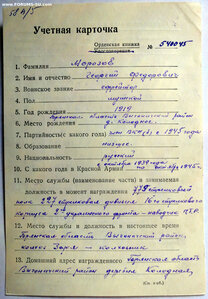 © FORUMS-SU.COM
Учетная карточка
Орденская книжка
№ 540045
1. Фамилия Морозов
2. Имя и отчество Георгий Федорович
3. Воинское звание ефрейтор
4. Пол мужской
5. Год рождения 1919
6. Место рождения Брянская область Выгоничский район
д. Колодная
7. Партийность(с какого года) член ВКП(б) с 1945 года
8. Образование низшее
9. Национальность русский
10. С какого года в Красной Армии с октября 1939 года
11. Место службы (наименование части) и занимаемая
должность в момент награждения 779 стрелковый
полк 227 стрелковая дивизия
корпуса 2 украинского фронта - наводчик ПТР.
12. Место службы и должность в настоящее время
Брянская область Выгоничский район,
колхоз Заря — колхозник
13. Домашний адрес награжденного Брянская область
Выгоничский район деревня Колодная